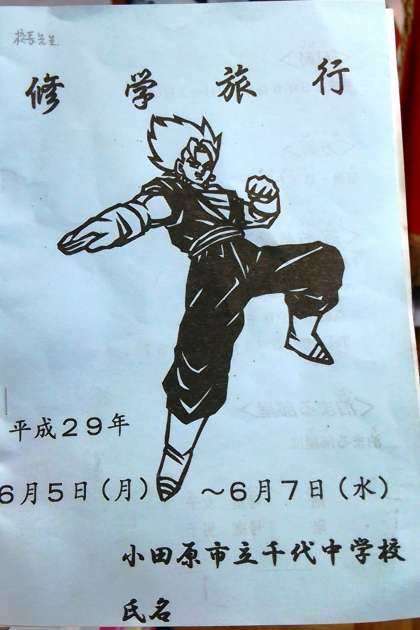 校長先生
修学旅行
平成29年
6月5日(月) ~6月7日(水)
小田原市立千代中学校
氏名